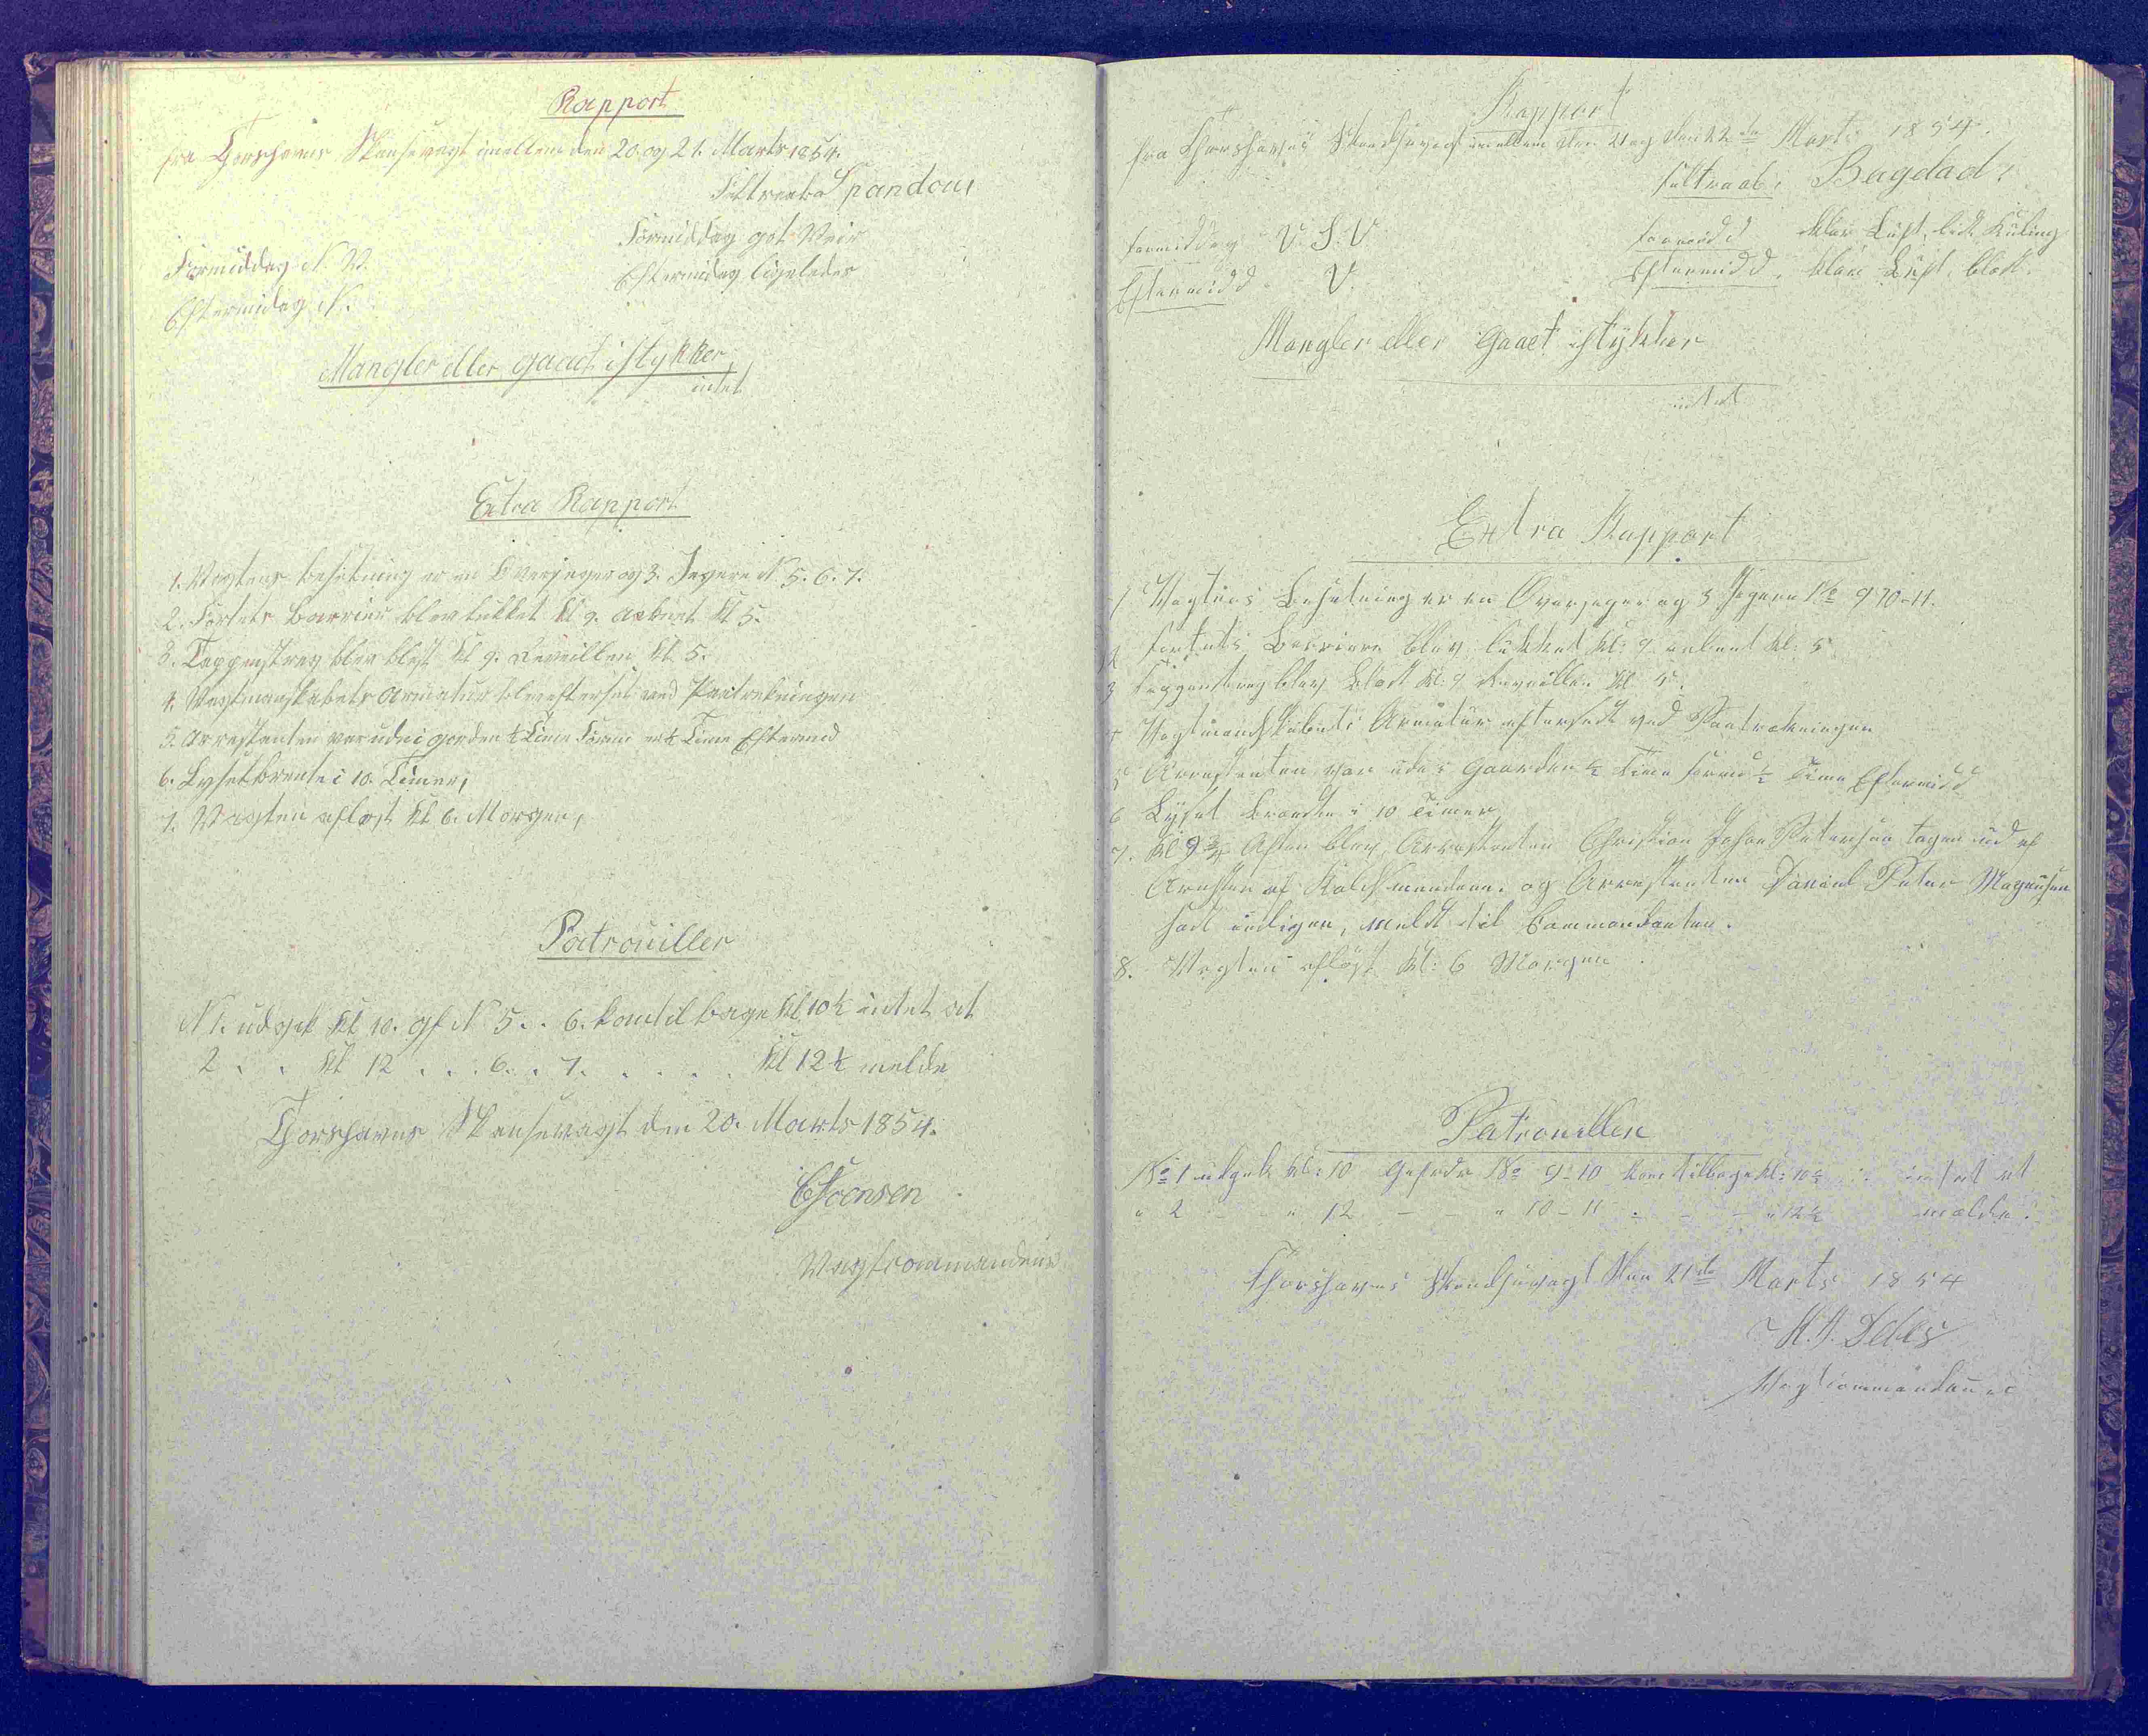 Rapport
fra Thorshavns Skansevagt imellem den 20. og 21. Marts 1854.
Feltraab Spandou
Formiddag N. V.
Eftermidag N.
Formiddag got Veir
Eftermidag ligeledes
Mangler eller gaaet istykker,
intet
Extra Rapport
1. Vagtens besetning er en Overjeger og 3. Jegere N 5. 6. 7.
2. Fortets Barriere blev lukket Kl 9. aabnet Kl 5.
3. Tappenstreg blev blest Kl 9. Reveillen Kl 5.
4. Vagtmanskabets Armatur blev efterset ved Paatrekningen
5. Arrestanten var ude i gorden ½ Time Formd ½ Time Eftermd
6. Lyset brente i 10. Timer,
7. Vagten afløst Kl 6. Morgen,
Patrouiller
N 1. udgik Kl 10. gf N 5. . 6. kom tilbage Kl 10½ intet at
2 . . Kl 12 . . . 6. . 7. . . . . Kl 12½ melde
Thorshavns Skansevagt den 20. Marts 1854.
Vagtcommandeur
Rapport
fra Thorshavns Skandsevagt imellem den 21 og den 22de Marts 1854.
Feltraab: Bagdad.
Formiddag V. S. V.
Eftermidd V.
Formidd klar Luft, lidt Kuling
Eftermidd. klar Luft, blødt.
Mangler eller Gaaet istykker
intet
Extra Rapport
1 Vagtens Besætning er en Overjeger og 3 Jegere No 9-10-11.
2 Fortets Barriere blev lukket Kl: 9 aabnet Kl: 5
3 Tappenstreg blev blæst Kl: 9 Reveillen Kl 5.
4 Vagtmandskabets Armatur efterseet ved Paatrækningen
5 Arrestanten var ude i Gaarden ½ Time Formd ½ Time Eftermidd
6 Lyset brændte i 10 Timer
7. Kl 9¾ Aften blev Arrestanten Christian Johan Petersen tagen ud af
Aresten af Politimændene. og Arrestanten Daniel Peter Magnusen
sadt indigen, meldt til Commandanten.
8. Vagten afløst Kl: 6 Morgen
Patrouiller
No 1 udgik Kl: 10 Gefrdr No 9-10 kom tilbage Kl: 10½ intet at
" 2 - - " 12 - - " 10-11 - - - " 12½ mælde.
Thorshavns Skandsevagt den 21de Marts 1854
Vagtcommandeur